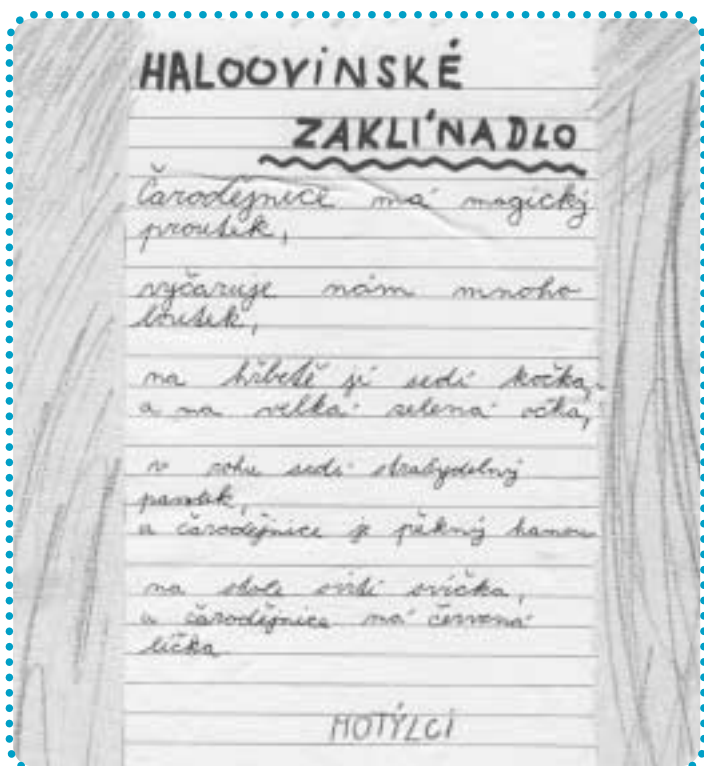 HALOOVINSKÉ
ZAKLÍNADLO
Čarodějnice má magický
proutek,
vyčaruje nám mnoho
loutek,
na hřbetě jí sedí kočka,
a na velká zelená očka,
v rohu sedí strašydelný
pavouk,
a čarodějnice je pěkný
na stole svítí svíčka,
a čarodějnice má červená
líčka
MOTÝLCI